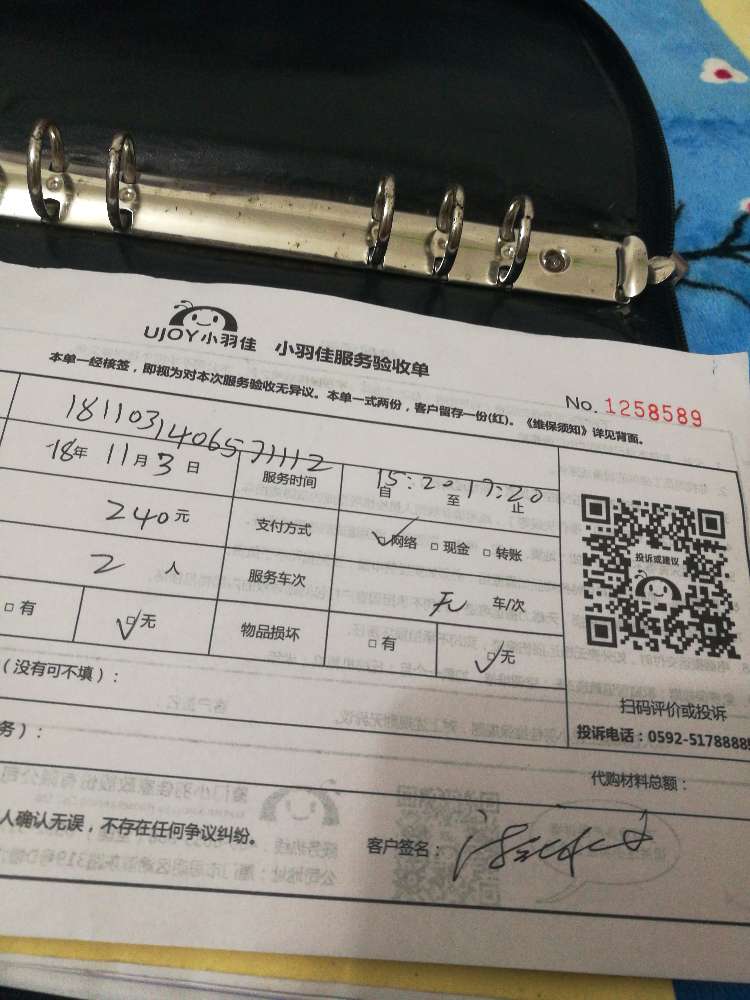 UJOY小羽佳 小羽佳服务验收单
本单一经核签，即视为对本次服务验收无异议。本单一式两份，客户留存一份(红)。《维保须知》详见背面。
No. 1258589
18年 11月 3日 服务时间 15:20 17:20
自 至 止
240元 支付方式 网络 现金 转账
投诉或建议
2人 服务车次 无 车/次
有 无 物品损坏 有 无
扫码评价或投诉
投诉电话：0592-5178888
（没有可不填）：
务）：
代购材料总额：
人确认无误，不存在任何争议纠纷。 客户签名：